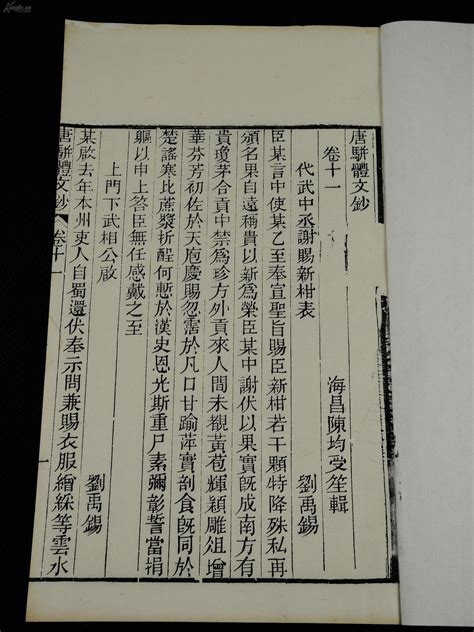 唐駢體文鈔
卷十一
海昌陳均受笙輯
代武中丞謝賜新柑表
劉禹錫
臣某言中使某乙至奉宣聖旨賜臣新柑若干顆特降殊私再
頒名果自遠稱貴以新為榮臣某中謝伏以果實既成南方有
貴瓊茅合貢中禁為珍方外貢來人間未覩黃苞輝穎雕俎增
華芬芳初佐於天庖慶賜忽霑於凡口甘踰萍實剖食既同於
楚謠寒比蔗漿折酲何慙於漢史恩光斯重尸素彌彰誓當捐
軀以申上答臣無任感戴之至
上門下武相公啟
劉禹錫
某啟去年本州吏人自蜀還伏奉示問兼賜衣服繒綵等雲水
唐駢體文鈔 卷十一
一
Kongfz.cn